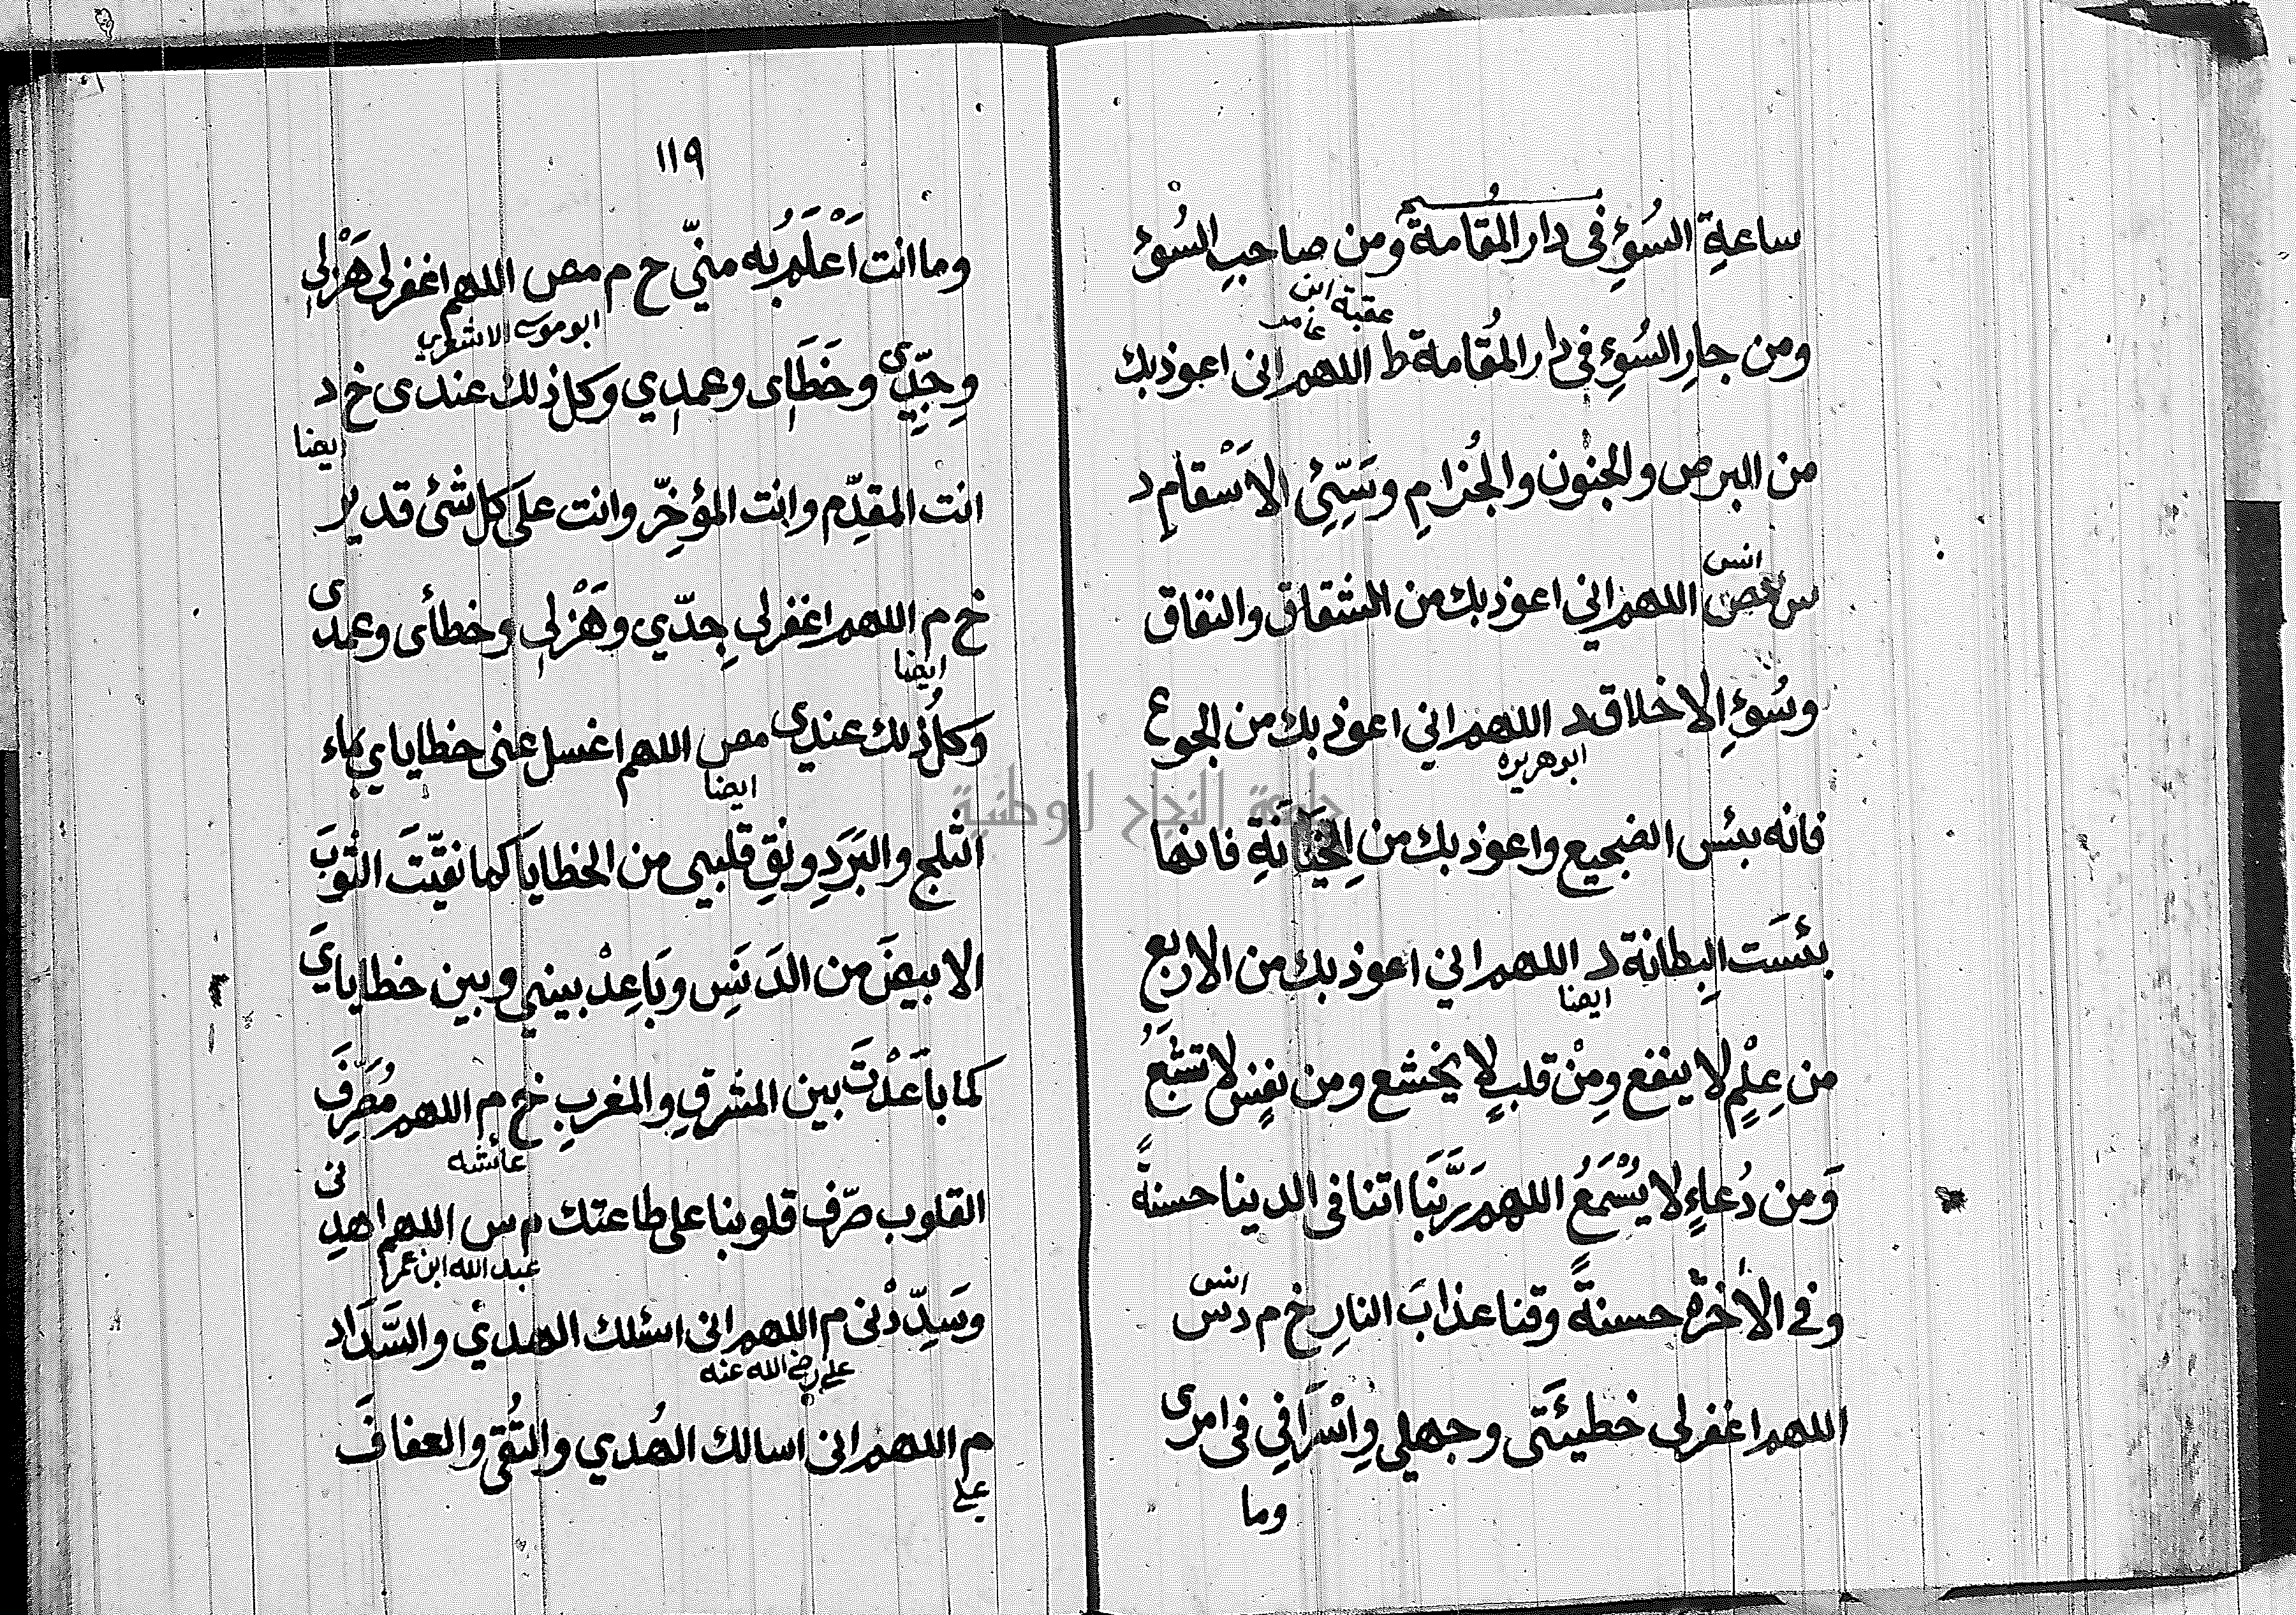 ساعةِ السُوءِ فى دار المُقامة ومن صاحبِ السُوءِ
عقبة ابن عامر
ومن جارِ السُوءِ في دار المُقامة ط اللهم انى اعوذ بك
من البرص والجنون والجُذامِ وسَيِّئِ الاَسْقامِ د
انس
س مص اللهم اني اعوذ بك من الشقاق والنفاق
وسُوءِ الاخلاق د اللهم اني اعوذ بك من الجوع
ابو هريره
فانه بئس الضجيع واعوذ بك من الخِيَانَةِ فانها
بئسَت البِطانة د اللهم اني اعوذ بك من الاربع
ايضا
من عِلْمٍ لا ينفع ومِنْ قلبٍ لا يخشع ومن نفسٍ لا تشبَعُ
وَمن دُعاءٍ لا يُسْمَعُ اللهم رَبَّنَا اتنا فى الدينا حسنةً
وفي الاخرة حسنةً وقنا عذابَ النارِ خ م د س
انس
اللهم اغفر لي خطيئَتى وجهلي وِاسْرَافِي فى امرى
وما
١١٩
وما انت اَعْلَمُ به منيّ خ م مص اللهم اغفر لى هَزْلِي
ابو موسى الاشعري
وجِدِّي وخَطَاىِ وعمدِي وكل ذلك عندى خ د
ايضا
انت المقدِّم وانت المؤخِّر وانت على كل شئ قدير
خ م اللهم اغفر لي جِدّي وهَزْلِي وخطأى وعمدى
ايضا
وكلُ ذلك عندِي مص اللهم اغسل عنى خطاياي بماء
ايضا
الثلج والبَرَدِ ونَقِ قلبي من الخطايَا كما نقيّتَ الثوبَ
الابيضَ من الدَنَسِ وبَاعِدْ بيني وبين خطايايَ
كما باعَدْتَ بين المشرقِ والمغربِ خ م اللهم مُصَرِّفَ
عائشه
القلوب صرّف قلوبنا على طاعتك م س اللهم اهدِنى
عبد الله ابن عمر
وسَدِّدْنى م اللهم انى اسئلك الهدي والسَّدَاد
علي رضي الله عنه
م اللهم انى اسالك الهُدي والتُقى والعفافَ
علي
جامعة النجاح الوطنية